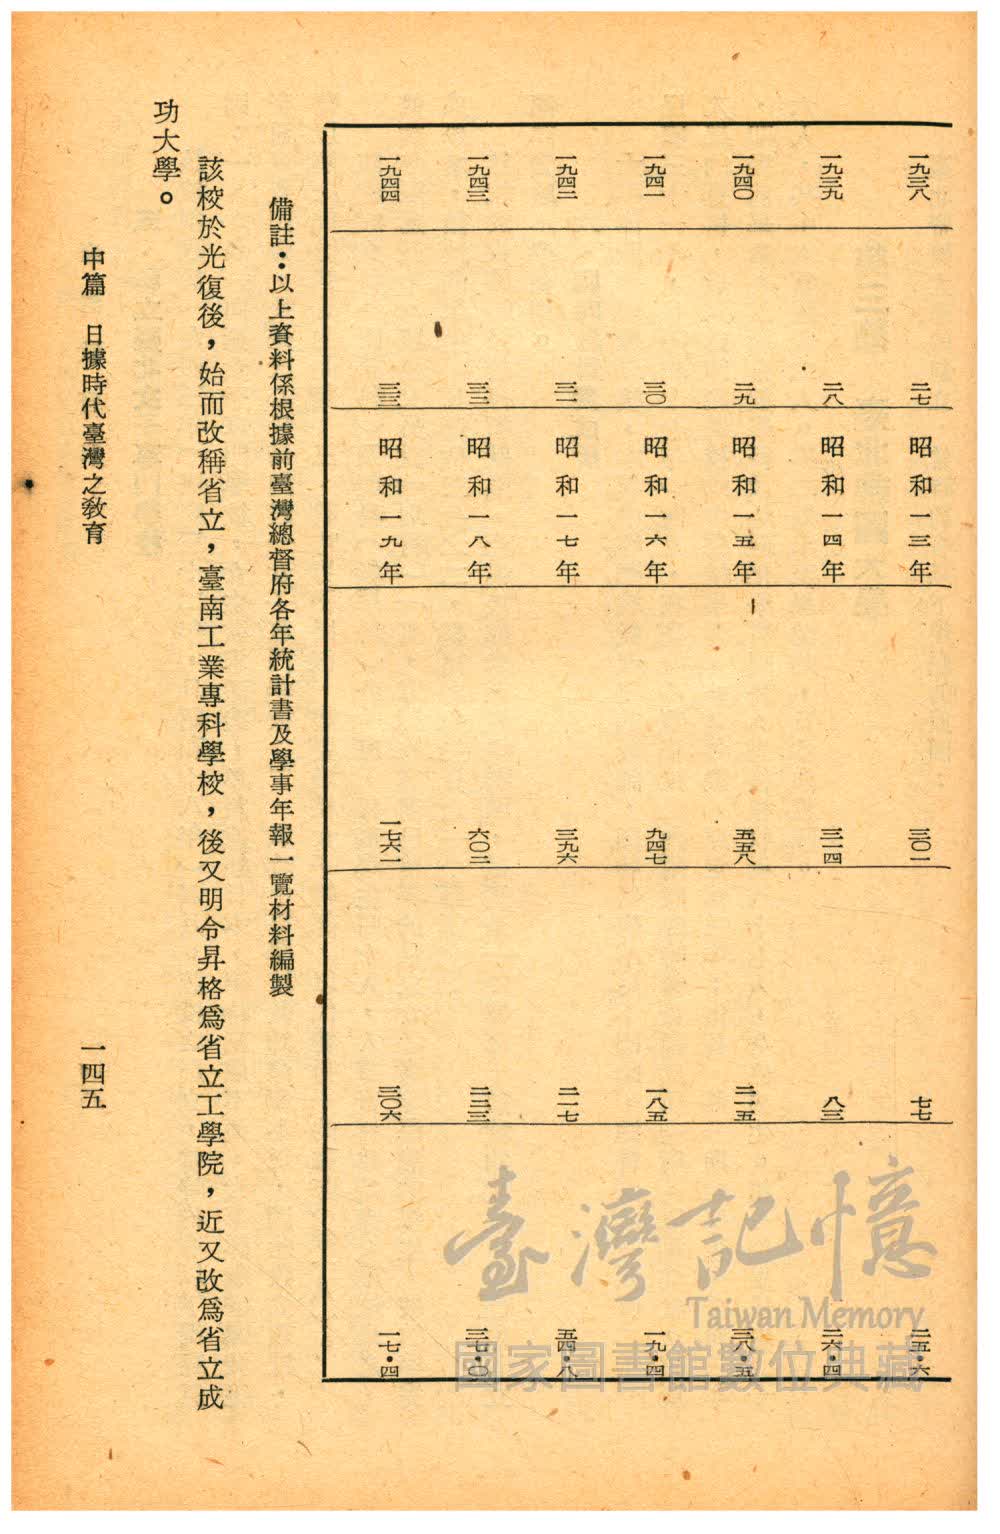 一九三八 二七 昭和一三年 三〇一 七七 二五·六
一九三九 二八 昭和一四年 三一四 八三 二六·四
一九四〇 二九 昭和一五年 五五八 二一五 三八·五
一九四一 三〇 昭和一六年 九四七 一八五 一九·四
一九四二 三一 昭和一七年 三九六 二一七 五四·八
一九四三 三二 昭和一八年 六〇二 二二三 三七·〇
一九四四 三三 昭和一九年 一七六一 三〇六 一七·四
備註：以上資料係根據前臺灣總督府各年統計書及學事年報一覽材料編製
該校於光復後，始而改稱省立，臺南工業專科學校，後又明令昇格爲省立工學院，近又改爲省立成
功大學。
中篇 日據時代臺灣之教育
一四五
臺灣記憶
Taiwan Memory
國家圖書館數位典藏